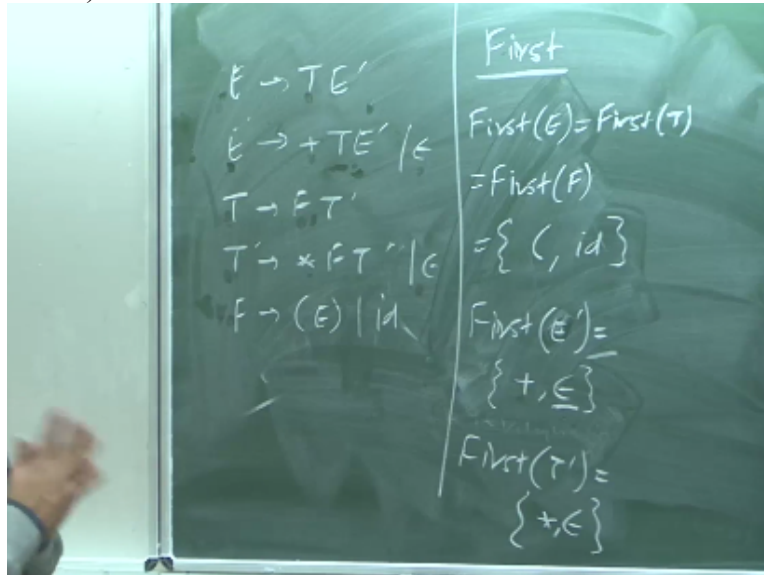 E → TE'
E' → +TE' | ε
T → FT'
T' → *FT' | ε
F → (E) | id
First
First(E) = First(T)
= First(F)
= { (, id }
First(E') =
{ +, ε }
First(T') =
{ *, ε }